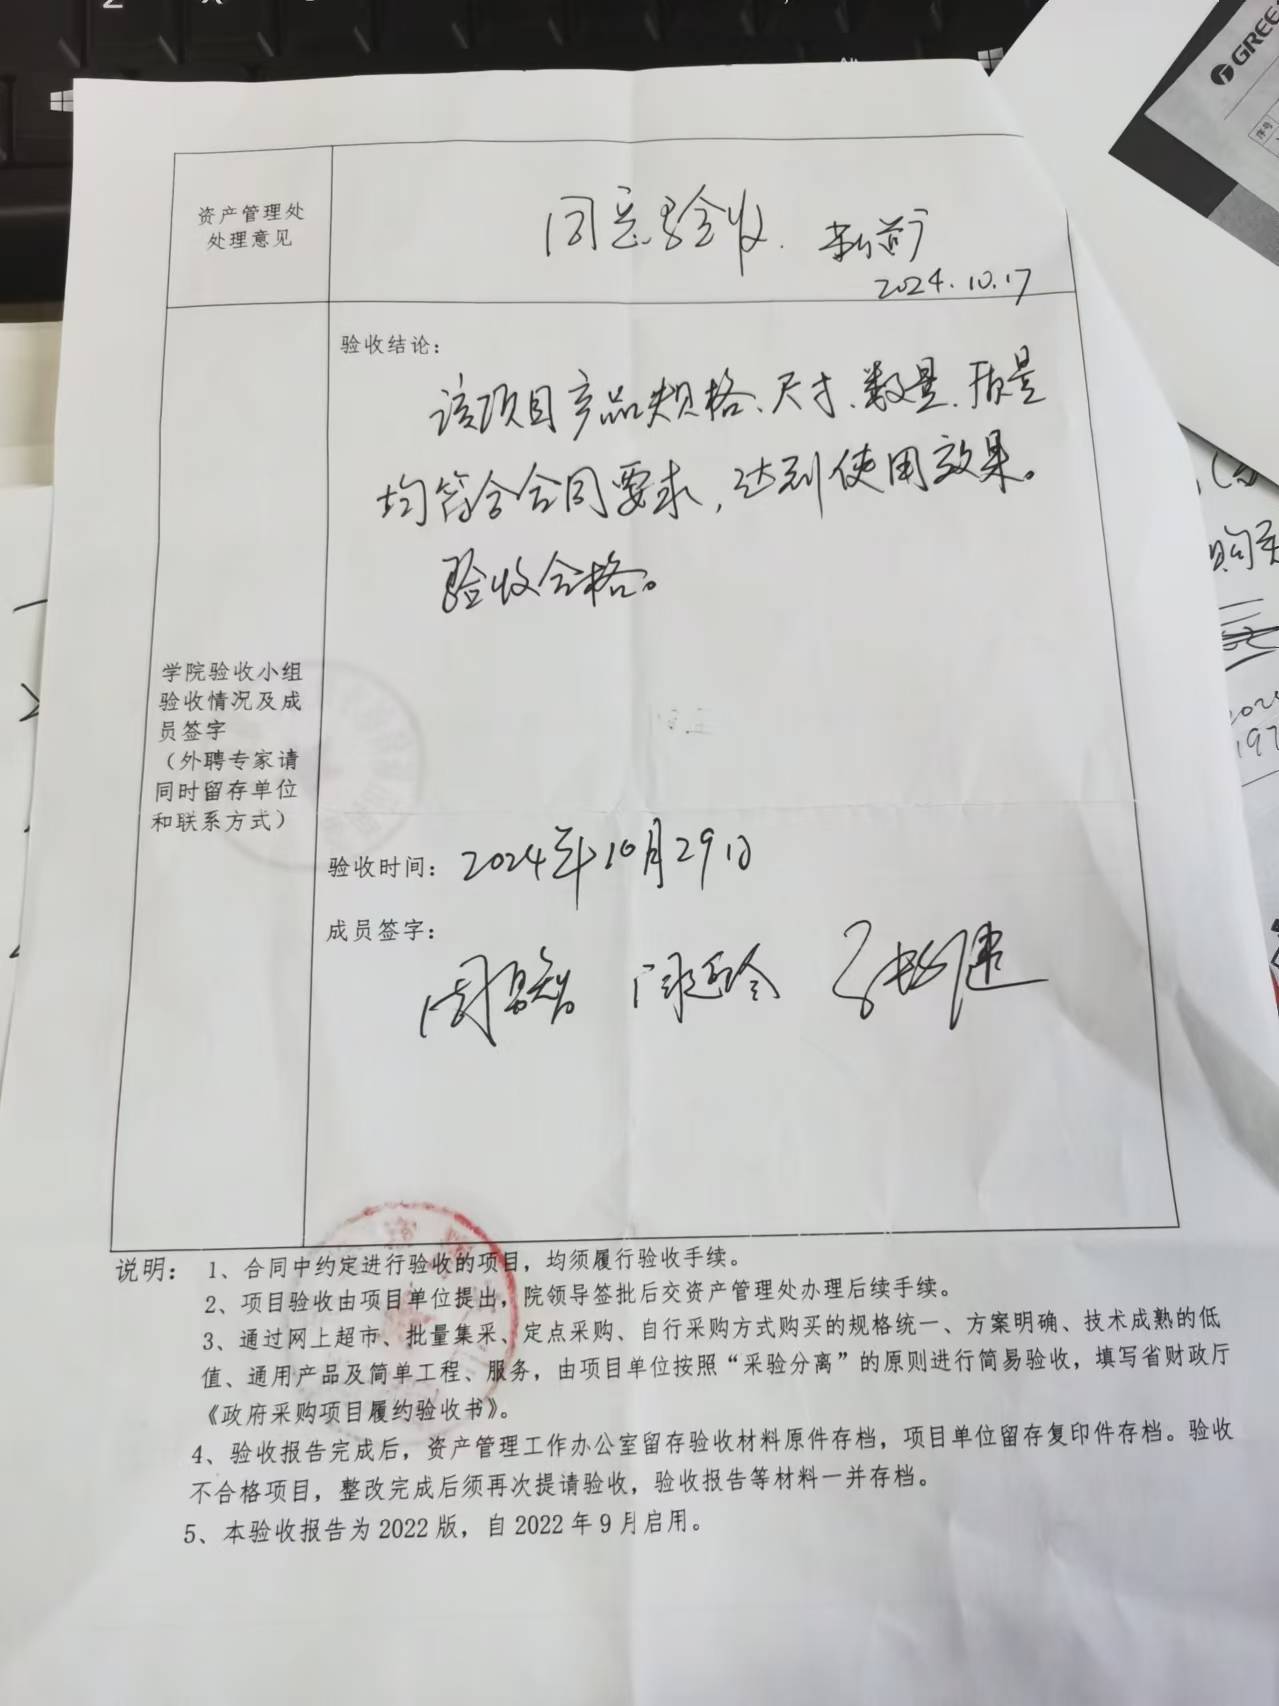 GREE
序号
资产管理处
处理意见
同意验收.
2024.10.17
验收结论：
该项目产品规格、尺寸、数量、质量
均符合合同要求，达到使用效果。
验收合格。
学院验收小组
验收情况及成
员签字
（外聘专家请
同时留存单位
和联系方式）
验收时间：2024年10月29日
成员签字：
购买
说明：1、合同中约定进行验收的项目，均须履行验收手续。
2、项目验收由项目单位提出，院领导签批后交资产管理处办理后续手续。
3、通过网上超市、批量集采、定点采购、自行采购方式购买的规格统一、方案明确、技术成熟的低
值、通用产品及简单工程、服务，由项目单位按照“采验分离”的原则进行简易验收，填写省财政厅
《政府采购项目履约验收书》。
4、验收报告完成后，资产管理工作办公室留存验收材料原件存档，项目单位留存复印件存档。验收
不合格项目，整改完成后须再次提请验收，验收报告等材料一并存档。
5、本验收报告为2022版，自2022年9月启用。